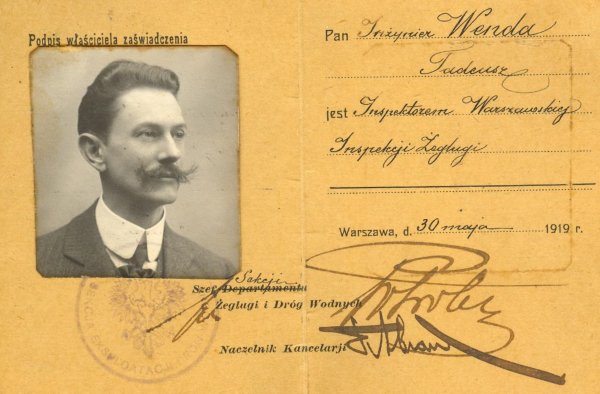 Podpis właściciela zaświadczenia
Pan Inżynier Wenda
Tadeusz
jest Inspektorem Warszawskiej
Inspekcji Żeglugi
Warszawa, d. 30 maja 1919 r.
Sekcji
Szef Departamentu
Żeglugi i Dróg Wodnych
Naczelnik Kancelarji